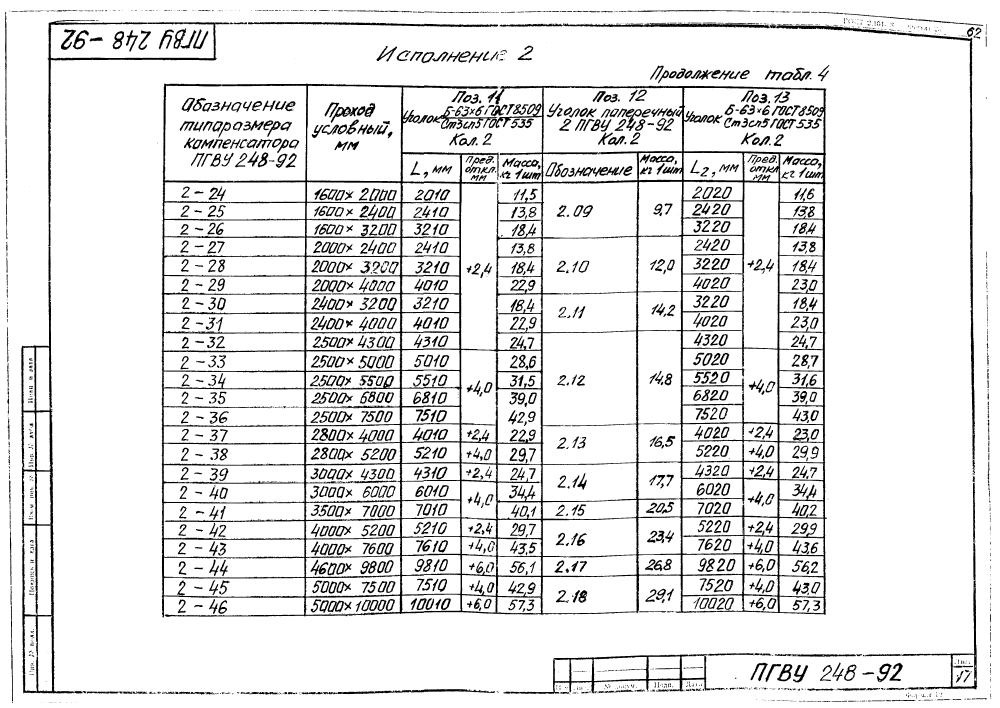 62
ПГВУ 248-92
Исполнение 2
Продолжение табл. 4
Обозначение типоразмера компенсатора ПГВУ 248-92 | Проход условный, мм | Поз. 11 Уголок Б-63×6 ГОСТ 8509 / Ст3сп5 ГОСТ 535 Кол. 2 | Поз. 12 Уголок поперечный 2 ПГВУ 248-92 Кол. 2 | Поз. 13 Уголок Б-63×6 ГОСТ 8509 / Ст3сп5 ГОСТ 535 Кол. 2
L, мм | Пред. откл. мм | Масса, кг 1 шт | Обозначение | Масса, кг 1 шт | L2, мм | Пред. откл. мм | Масса, кг 1 шт
2-24 | 1600×2000 | 2010 | +2,4 | 11,5 | 2.09 | 9,7 | 2020 | +2,4 | 11,6
2-25 | 1600×2400 | 2410 | 13,8 | 2420 | 13,8
2-26 | 1600×3200 | 3210 | 18,4 | 3220 | 18,4
2-27 | 2000×2400 | 2410 | 13,8 | 2.10 | 12,0 | 2420 | 13,8
2-28 | 2000×3200 | 3210 | 18,4 | 3220 | 18,4
2-29 | 2000×4000 | 4010 | 22,9 | 4020 | 23,0
2-30 | 2400×3200 | 3210 | 18,4 | 2.11 | 14,2 | 3220 | 18,4
2-31 | 2400×4000 | 4010 | 22,9 | 4020 | 23,0
2-32 | 2500×4300 | 4310 | 24,7 | 2.12 | 14,8 | 4320 | 24,7
2-33 | 2500×5000 | 5010 | +4,0 | 28,6 | 5020 | +4,0 | 28,7
2-34 | 2500×5500 | 5510 | 31,5 | 5520 | 31,6
2-35 | 2500×6800 | 6810 | 39,0 | 6820 | 39,0
2-36 | 2500×7500 | 7510 | 42,9 | 7520 | 43,0
2-37 | 2800×4000 | 4010 | +2,4 | 22,9 | 2.13 | 16,5 | 4020 | +2,4 | 23,0
2-38 | 2800×5200 | 5210 | +4,0 | 29,7 | 5220 | +4,0 | 29,9
2-39 | 3000×4300 | 4310 | +2,4 | 24,7 | 2.14 | 17,7 | 4320 | +2,4 | 24,7
2-40 | 3000×6000 | 6010 | +4,0 | 34,4 | 6020 | +4,0 | 34,4
2-41 | 3500×7000 | 7010 | 40,1 | 2.15 | 20,5 | 7020 | 40,2
2-42 | 4000×5200 | 5210 | +2,4 | 29,7 | 2.16 | 23,4 | 5220 | +2,4 | 29,9
2-43 | 4000×7600 | 7610 | +4,0 | 43,5 | 7620 | +4,0 | 43,6
2-44 | 4600×9800 | 9810 | +6,0 | 56,1 | 2.17 | 26,8 | 9820 | +6,0 | 56,2
2-45 | 5000×7500 | 7510 | +4,0 | 42,9 | 2.18 | 29,1 | 7520 | +4,0 | 43,0
2-46 | 5000×10000 | 10010 | +6,0 | 57,3 | 10020 | +6,0 | 57,3
ПГВУ 248-92
Лист
17
№ докум. | Подп. | Дата